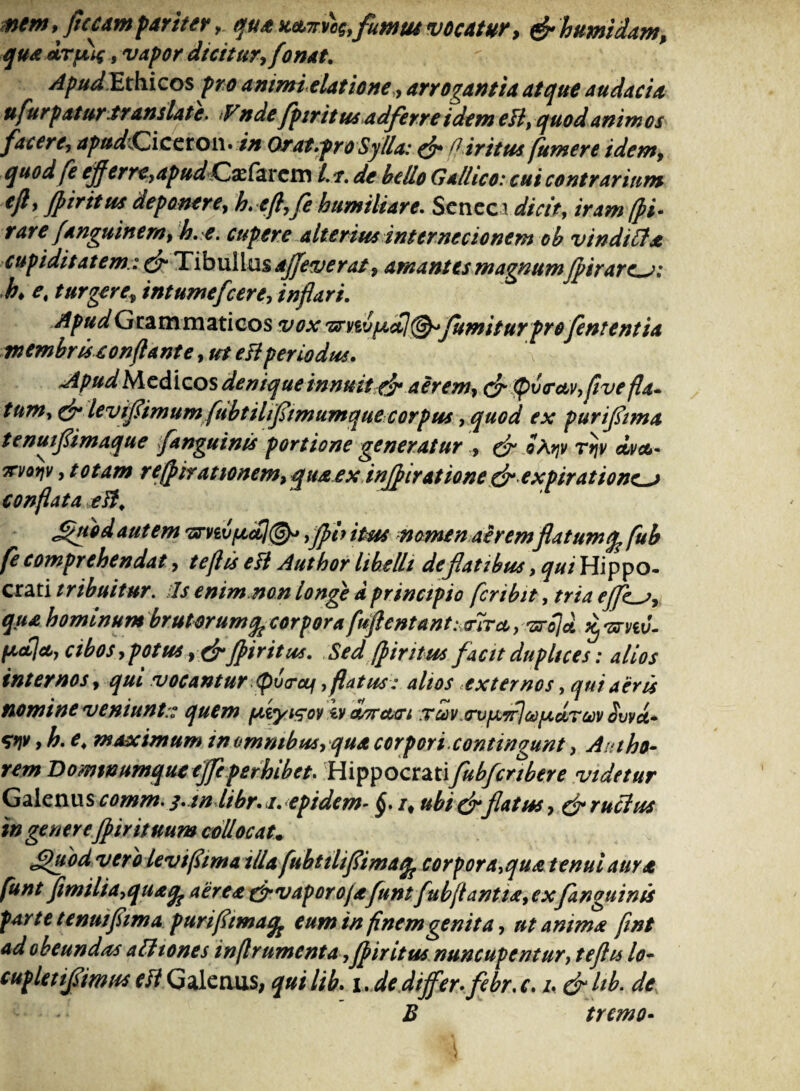 nem, siccam pariter, quæ καπνὸς, fumus vocatur, & humidam,
quæ ἀτμὶς, vapor dicitur, sonat.
Apud Ethicos pro animi elatione, arrogantia atque audacia
usurpatur translatè. Vnde spiritus adferre idem est, quod animos
facere, apud Ciceron. in Orat. pro Sylla: & spiritus sumere idem,
quod se efferre, apud Cæsarem l. 1. de bello Gallico: cui contrarium
est, spiritus deponere, h. est, se humiliare. Seneca dicit, iram spi-
rare sanguinem, h. e. cupere alterius internecionem ob vindictæ
cupiditatem: & Tibullus asseverat, amantes magnum spirare:
h. e. turgere, intumescere, inflari.
Apud Grammaticos vox πνεύμαlος sumitur pro sententia
membris constante, ut est periodus.
Apud Medicos denique innuit & aërem, & φύσαν, sive fla-
tum, & levissimum subtilissimumque corpus, quod ex purissima
tenuissimaque sanguinis portione generatur, & ὅλην τὴν ἀνα-
πνοὴν, totam respirationem, quæ ex inspiratione & expiratione
conflata est.
Quod autem πνεύμαlος, spiritus nomen aërem flatumq́; sub
se comprehendat, testis est Author libelli de flatibus, qui Hippo-
crati tribuitur. Is enim non longè à principio scribit, tria esse,
quæ hominum brutorumq́; corpora sustentant: σῖτα, ποlὰ κỳ πνεύ-
μαlα, cibos, potus, & spiritus. Sed spiritus facit duplices: alios
internos, qui vocantur φύσαι, flatus: alios externos, qui aëris
nomine veniunt: quem μέγιστον ἐν ἅπασι τῶν συμπlωμάτων δυνά-
στην, h. e. maximum in omnibus, quæ corpori contingunt, Autho-
rem Dominumque esse perhibet. Hippocrati subscribere videtur
Galenus comm. 3. in libr. 1. epidem. §. 1, ubi & flatus, & ructus
in genere spirituum collocat.
Quod verò levissima illa subtilissimaq́; corpora, quæ tenui auræ
sunt similia, quæq́; aërea & vaporosæ sunt substantiæ, ex sanguinis
parte tenuissima purissimaq́; eum in finem genita, ut animæ sint
ad obeundas actiones instrumenta, spiritus nuncupentur, testis lo-
cupletissimus est Galenus, qui lib. 1. de differ. febr. c. 1. & lib. de
B tremo-